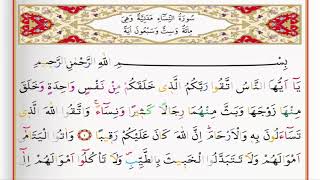 سُورَةُ النِّسَاءِ مَدَنِيَّةٌ وَهِىَ
مِائَةٌ وَسِتٌّ وَسَبْعُونَ اٰيَةً
بِسْمِ اللّٰهِ الرَّحْمٰنِ الرَّحِيمِ
يَٓا اَيُّهَا النَّاسُ اتَّقُوا رَبَّكُمُ الَّذ۪ى خَلَقَكُمْ مِنْ نَفْسٍ وَاحِدَةٍ وَخَلَقَ
مِنْهَا زَوْجَهَا وَبَثَّ مِنْهُمَا رِجَالًا كَث۪يرًا وَنِسَٓاءًۚ وَاتَّقُوا اللّٰهَ الَّذ۪ى
تَسَٓاءَلُونَ بِه۪ وَالْاَرْحَامَۜ اِنَّ اللّٰهَ كَانَ عَلَيْكُمْ رَق۪يبًا ١ وَاٰتُوا الْيَتَامٰٓى
اَمْوَالَهُمْ وَلَا تَتَبَدَّلُوا الْخَب۪يثَ بِالطَّيِّبِۖ وَلَا تَأْكُلُٓوا اَمْوَالَهُمْ اِلٰٓى